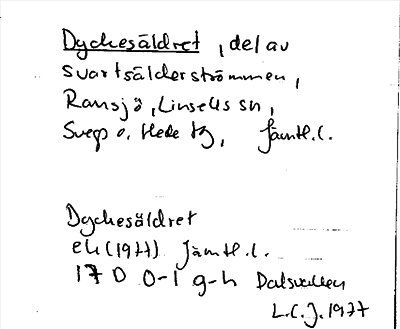 Dyckesäldret, del av
Svartsälderströmmen,
Ransjö, Linsells sn,
Svegs o. Hede tg, Jämtl.l.
Dyckesäldret
ek (1977) Jämtl.l.
17 D 0-1 g-h Dalsvallen
L.C.J. 1977